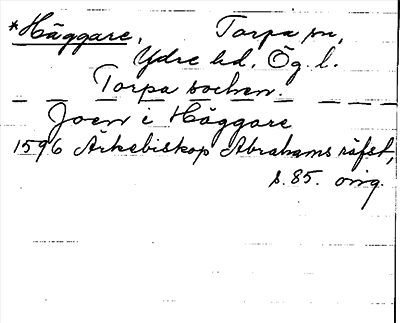 *Häggare, Torpa sn,
Ydre hd, Ög. l.
Torpa socken.
Joen i Häggare
1596 Ärkebiskop Abrahams räfst,
s. 85. orig.